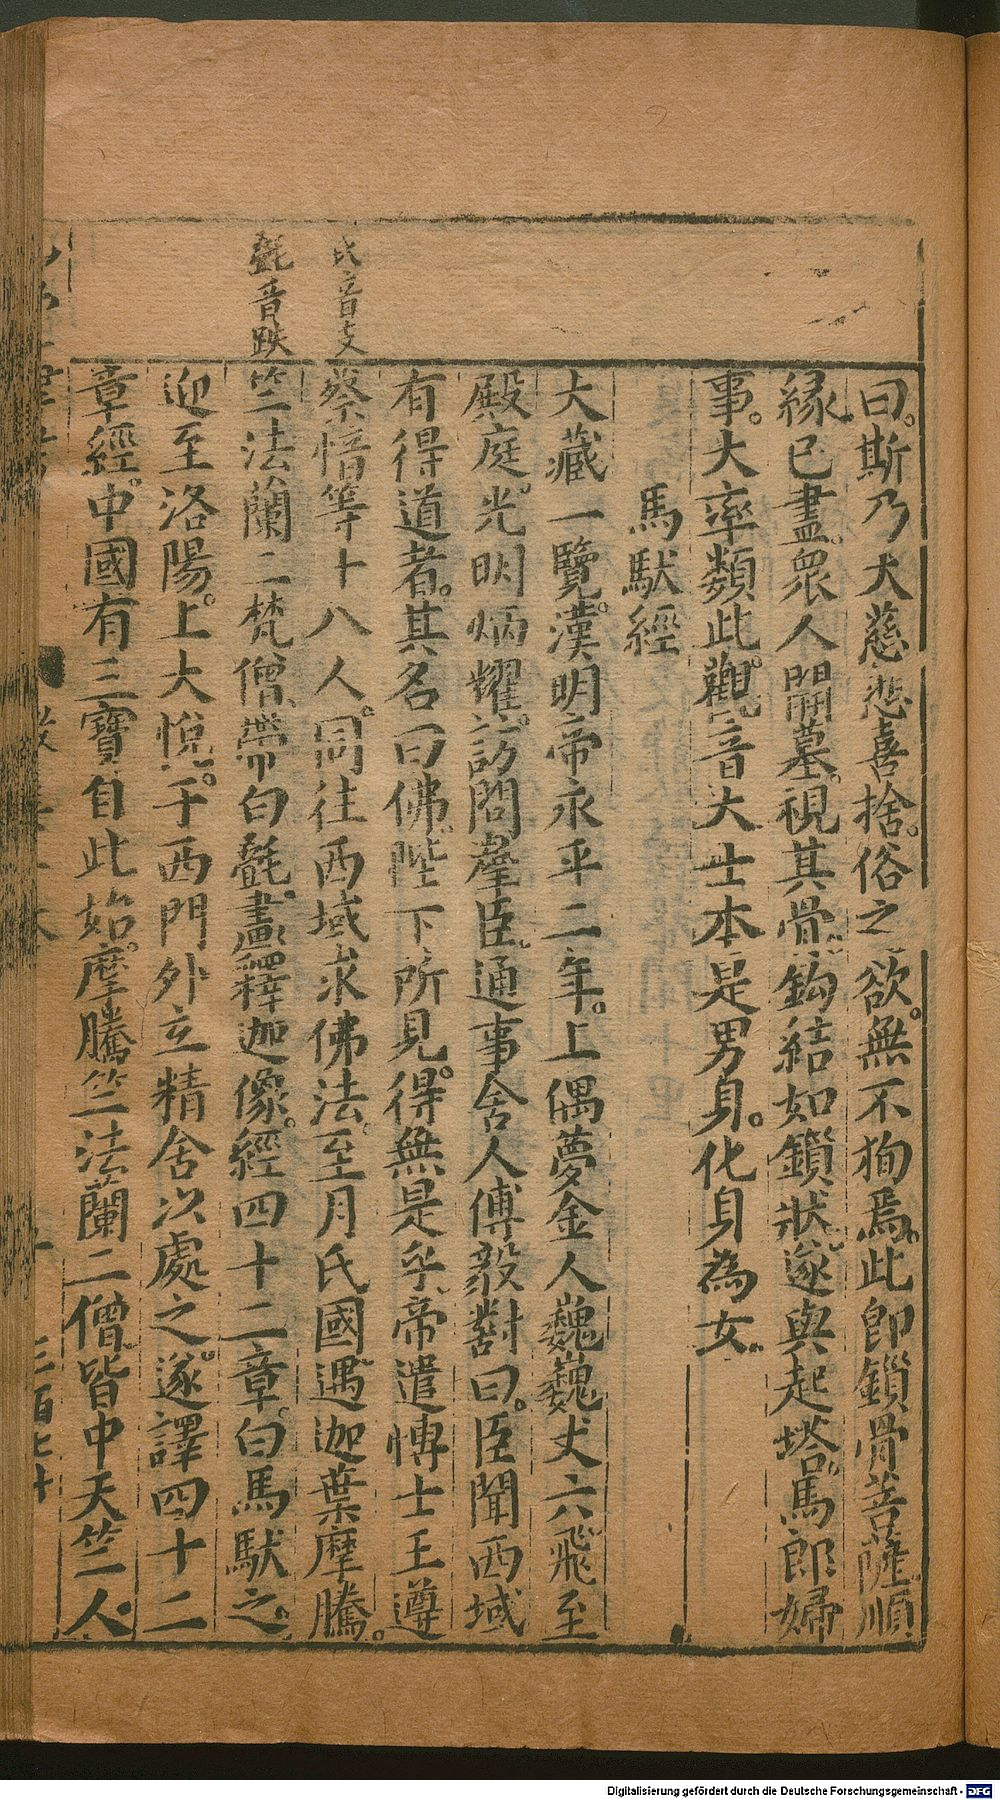 曰。斯乃大慈悲喜捨。俗之欲。無不徇焉。此即鎖骨菩薩。順
緣已盡。眾人開墓。視其骨。鈎結如鎖狀。遂與起塔。馬郎婦
事。大率類此。觀音大士本是男身。化身為女。
馬馱經
大藏一覽。漢明帝永平二年。上偶夢金人巍巍丈六飛至
殿庭。光明炳耀。訪問羣臣。通事舍人傅毅對曰。臣聞西域
有得道者。其名曰佛。陛下所見。得無是乎。帝遣博士王遵
蔡愔等十八人。同往西域求佛法。至月氏國遇迦葉摩騰。
竺法蘭二梵僧。帶白㲲畫釋迦像。經四十二章。白馬馱之。
迎至洛陽。上大悅。于西門外立精舍以處之。遂譯四十二
章經。中國有三寶自此始。摩騰竺法蘭二僧。皆中天竺人。
氏音支
㲲音跌
三百七十
Digitalisierung gefördert durch die Deutsche Forschungsgemeinschaft - DFG